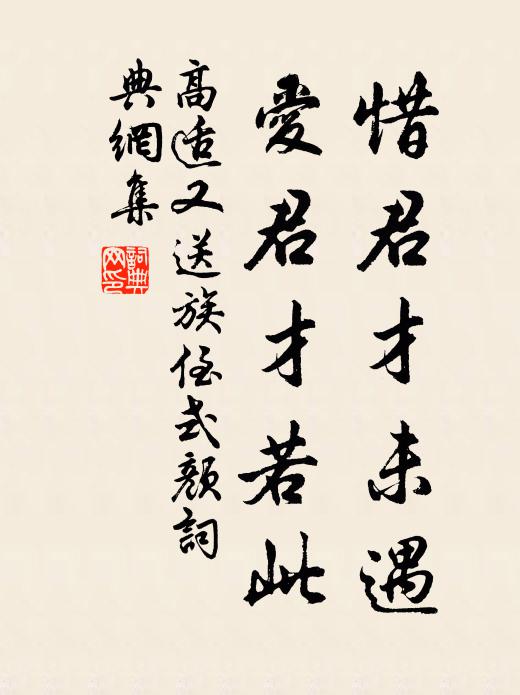 惜君才未遇
愛君才若此
高适又送族侄式顏詞
典網集
詞典
网印